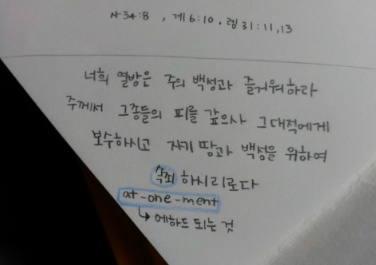 사34:8 , 계6:10, 렘31:11,13
너희 열방은 주의 백성과 즐거워하라
주께서 그 종들의 피를 갚으사 그 대적에게
보수하시고 자기 땅과 백성을 위하여
속죄 하시리로다
at-one-ment
↳ 에하드 되는 것